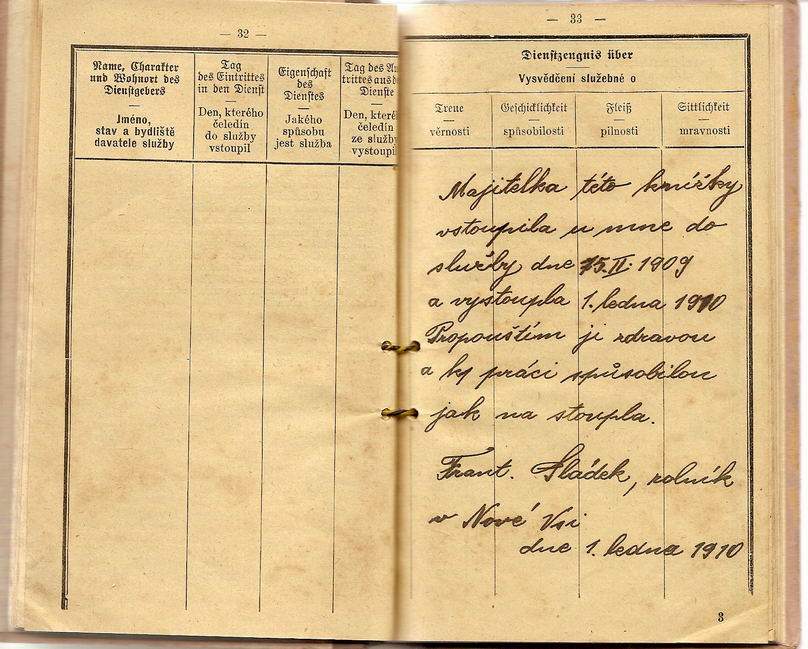 — 32 —
Name, Charakter
und Wohnort des
Dienstgebers
Jméno,
stav a bydliště
davatele služby
Tag
des Eintrittes
in den Dienst
Den, kterého
čeledín
do služby
vstoupil
Eigenschaft
des
Dienstes
Jakého
spůsobu
jest služba
Tag des Au
trittes aus de
Dienste
Den, které
čeledín
ze služb
vystoupi
— 33 —
Dienstzeugnis über
Vysvědčení služebné o
Treue
věrnosti
Geschicklichkeit
spůsobilosti
Fleiß
pilnosti
Sittlichkeit
mravnosti
Majitelka této knížky
vstoupila u mne do
služby dne 15. II. 1909
a vystoupla 1. ledna 1910
Propouštím ji zdravou
a ku práci spůsobilou
jak na stoupla.
Frant. Sládek, rolník
v Nové Vsi
dne 1. ledna 1910
3